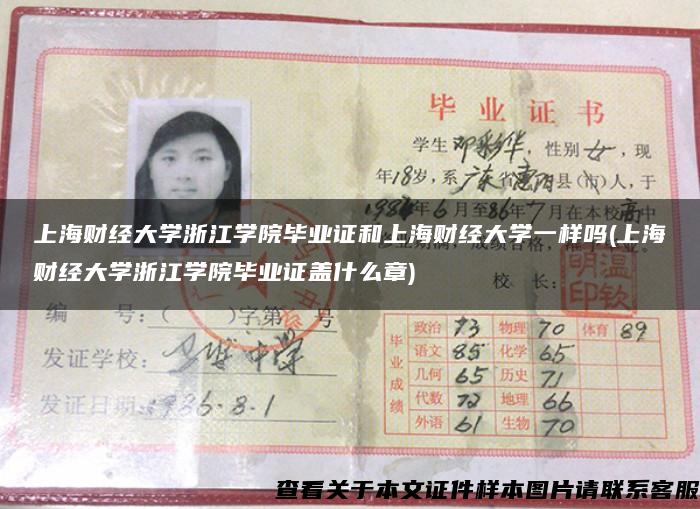 毕业证书
学生邓彩华，性别女，现
年18岁，系广东省惠阳县(市)人，于
1984年6月至86年7月在本校高
上海财经大学浙江学院毕业证和上海财经大学一样吗(上海
财经大学浙江学院毕业证盖什么章)
校 长：
编 号：( )字第 号
发证学校： 中学
发证日期：1986.8.1
毕业成绩
政治 73 物理 70 体育 89
语文 85 化学 65
几何 65 历史 71
代数 72 地理 66
外语 61 生物 70
查看关于本文证件样本图片请联系客服